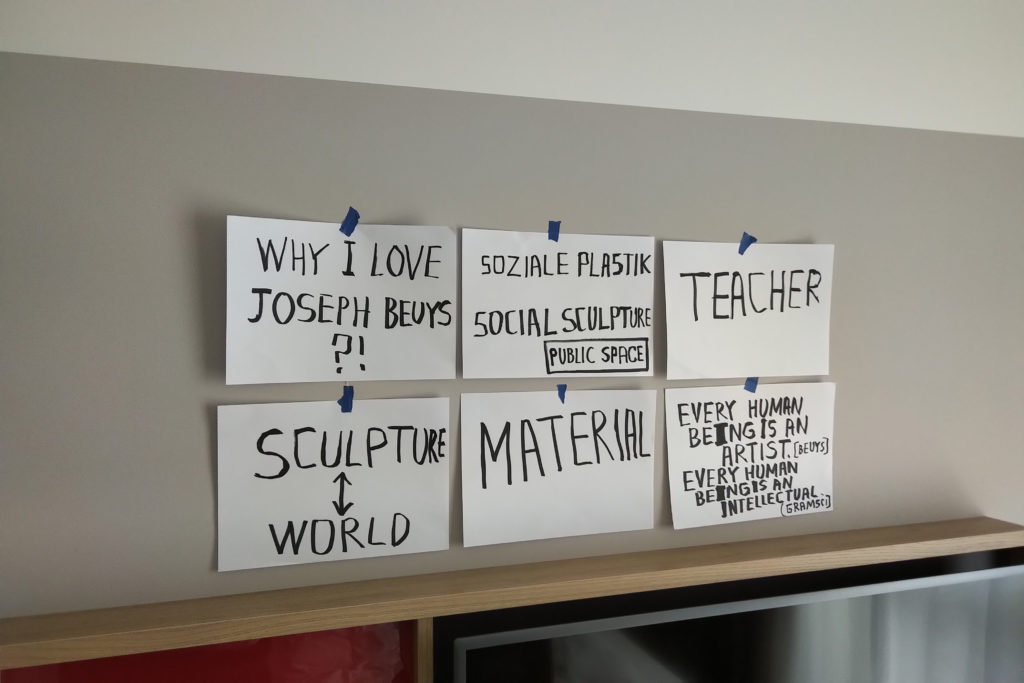 WHY I LOVE
JOSEPH BEUYS
?!
SOZIALE PLASTIK
SOCIAL SCULPTURE
PUBLIC SPACE
TEACHER
SCULPTURE
↕
WORLD
MATERIAL
EVERY HUMAN
BEING IS AN
ARTIST. [BEUYS]
EVERY HUMAN
BEING IS AN
INTELLECTUAL
[GRAMSCI]